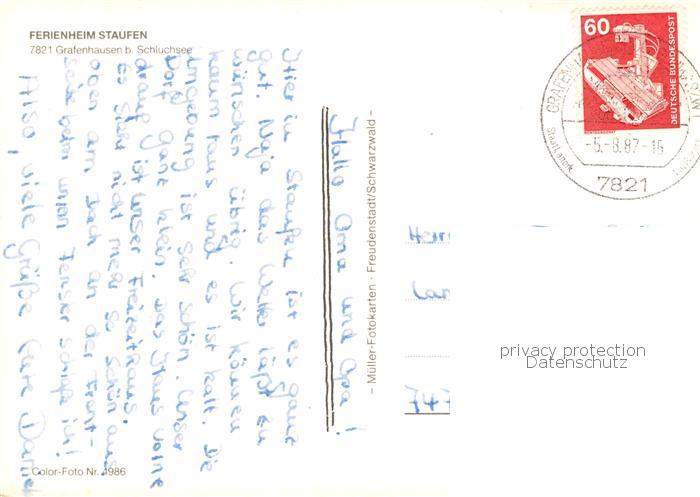 FERIENHEIM STAUFEN
7821 Grafenhausen b. Schluchsee
Hallo Oma und Opa!
Hier in Staufen ist es ganz
gut. Naja das Wetter läßt zu
wünschen übrig. Wir können
kaum raus und es ist kalt. Die
Umgebung ist sehr schön. Unser
Dorf ganz klein. Das Haus vorne
drauf ist unser Freizeithaus.
Es sieht nicht mehr so schön aus
oben am Dach an der Front-
seite beim Fenster schlafe ich!
Also, viele Grüße Eure
Color-Foto Nr. 4986
– Müller-Fotokarten · Freudenstadt/Schwarzwald –
60
DEUTSCHE BUNDESPOST
-5.-8.87-16
7821
privacy protection
Datenschutz